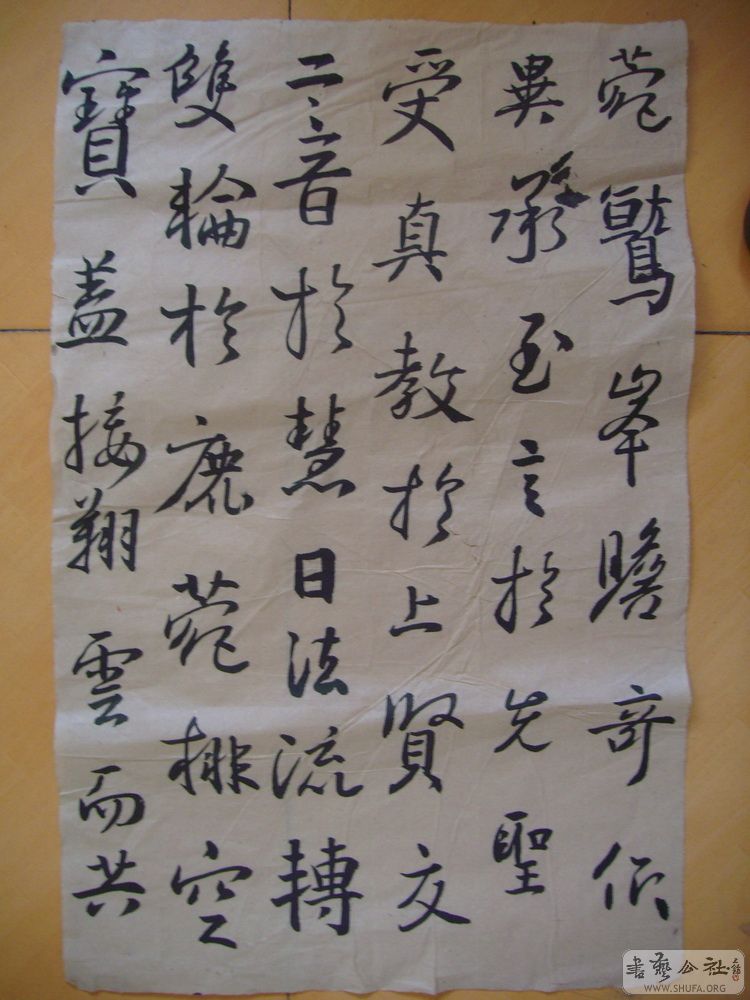 菀鷲峯瞻奇仰
異承至言於先聖
受真教於上賢交
二音於慧日法流轉
雙輪於鹿菀排空
寶盖接翔雲而共
書藝公社
WWW.SHUFA.ORG